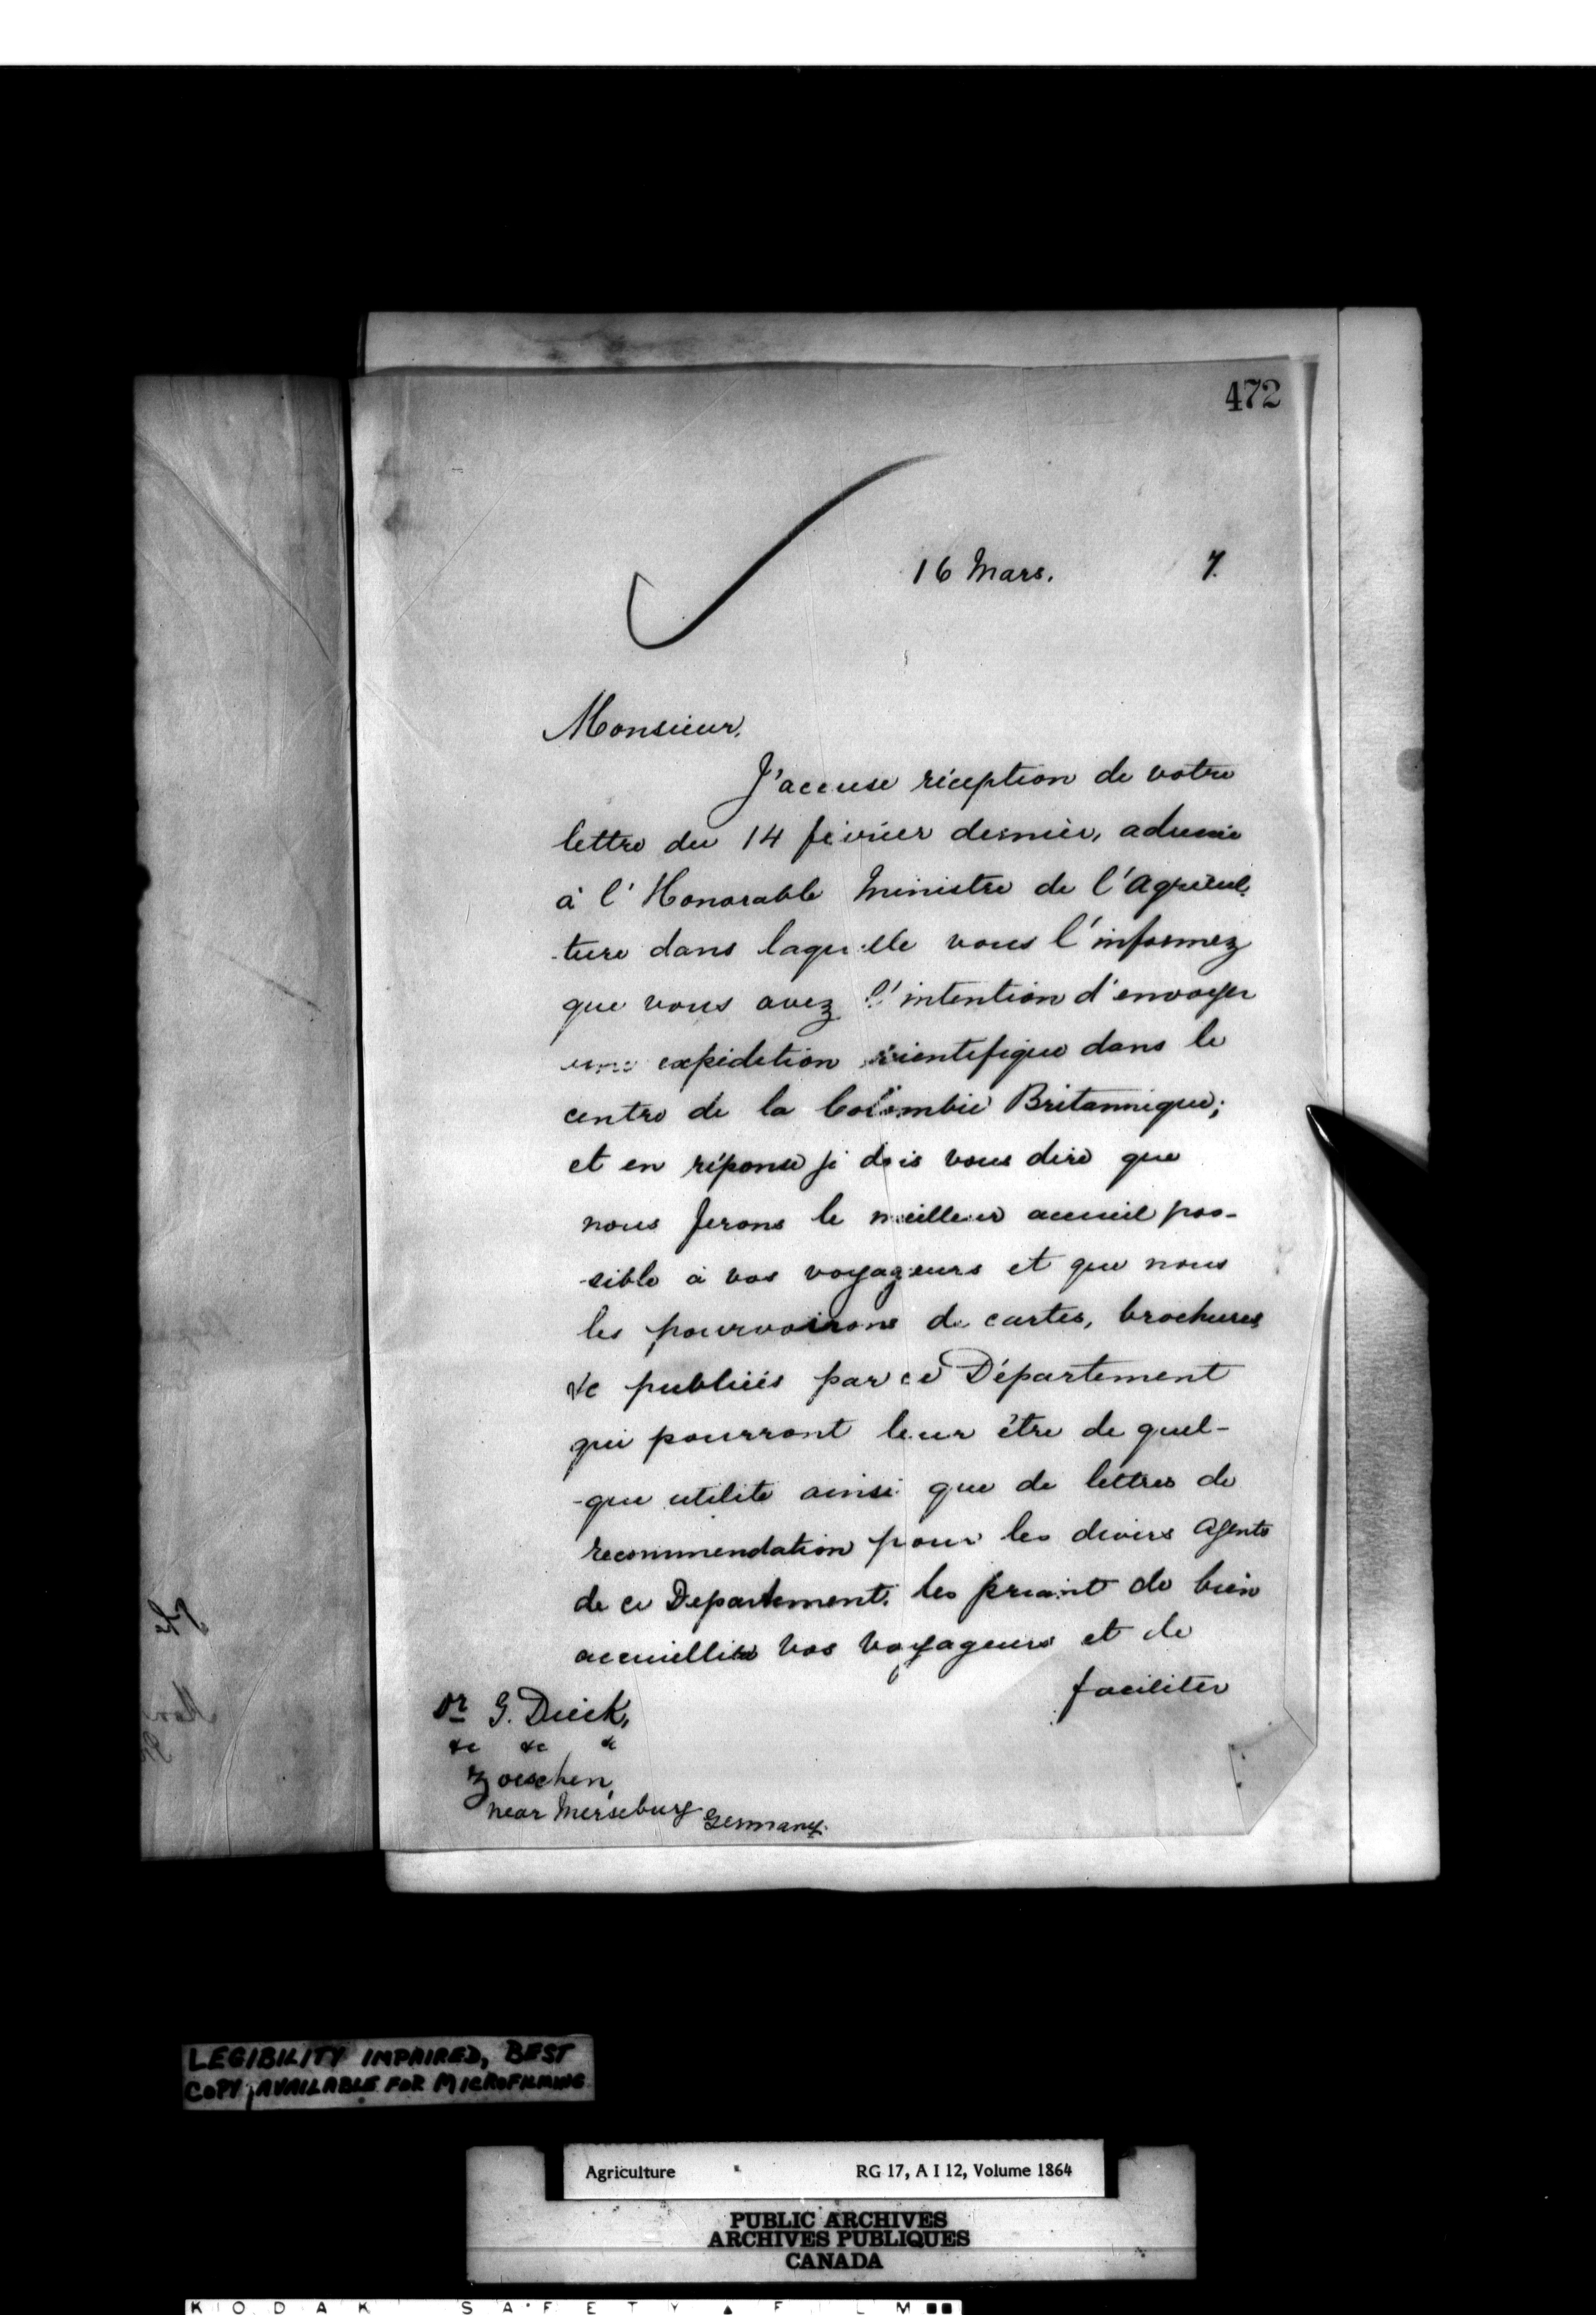 472
16 Mars. 7.
Monsieur,
J'accuse réception de votre
lettre du 14 février dernier, adressée
à l'Honorable Ministre de l'Agricul-
-ture dans laquelle vous l'informez
que vous avez l'intention d'envoyer
une expédition scientifique dans le
centre de la Colombie Britannique;
et en réponse je dois vous dire que
nous ferons le meilleur accueil pos-
-sible à vos voyageurs et que nous
les pourvoirons de cartes, brochures
&c publiés par ce Département
qui pourront leur être de quel-
-que utilité ainsi que de lettres de
recommendation pour les divers Agents
de ce Departement, les priant de bien
accueillir vos voyageurs et de
faciliter
Dr G. Dieck,
&c &c &c
Zoeschen,
near Merseburg Germany.
LEGIBILITY IMPAIRED, BEST
COPY AVAILABLE FOR MICROFILMING
Agriculture RG 17, A I 12, Volume 1864
PUBLIC ARCHIVES
ARCHIVES PUBLIQUES
CANADA
KODAK SAFETY ▲ FILM